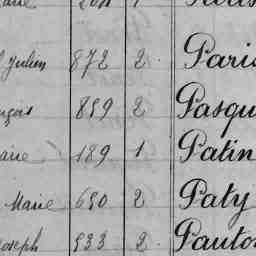 Julien 872 2 Paris
859 2 Pasqu
189 1 Patin
Marie 690 2 Paty
Joseph 933 2 Pautor